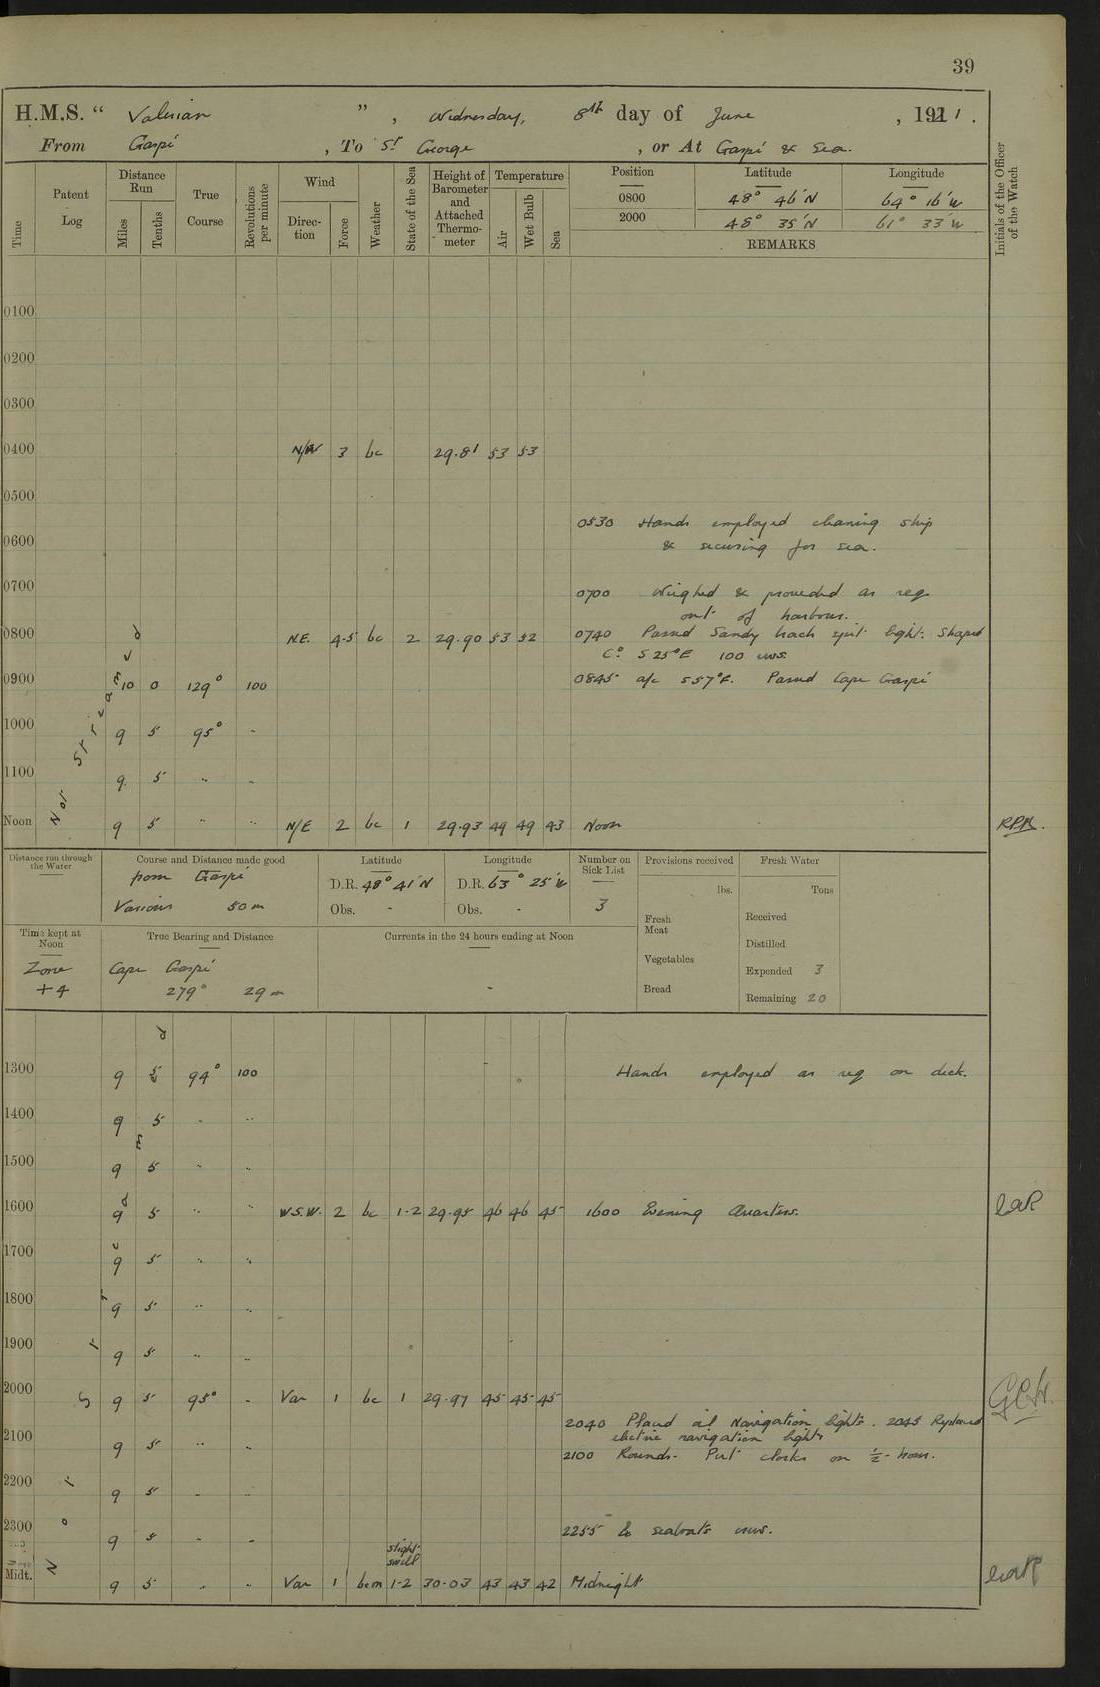 39
H.M.S. “ Valerian ” , Wednesday, 8th day of June , 1921 .
From Gaspé , To St George , or At Gaspé & Sea.
Time
Patent Log
Distance Run
Miles
Tenths
True Course
Revolutions per minute
Wind
Direction
Force
Weather
State of the Sea
Height of Barometer and Attached Thermometer
Temperature
Air
Wet Bulb
Sea
Position Latitude Longitude
0800 48° 46'N 64° 16'W
2000 48° 35'N 61° 33'W
REMARKS
Initials of the Officer of the Watch
0100
0200
0300
0400 3 bc 29.81 53 53
0500
0530 Hands employed cleaning ship
0600 & securing for sea.
0700 Weighed & proceeded as req
out of harbour.
0800 N.E. 4-5 bc 2 29.90 53 52 0740 Passed Sandy beach spit light. Shaped
Co S 25°E 100
0900 10 0 129° 100 0845 a/c S57°E. Passed Cape Gaspé
1000 9 5 95° "
1100 9 5 " "
Noon 9 5 " " N/E 2 bc 1 29.93 49 49 43 Noon
Not Streamed
Distance run through the Water
Course and Distance made good
from Gaspé
Various 50 m
Latitude
D.R. 48° 41'N
Obs. -
Longitude
D.R. 63° 25'W
Obs. -
Number on Sick List
3
Provisions received
lbs.
Fresh Meat
Vegetables
Bread
Fresh Water
Tons
Received
Distilled
Expended 3
Remaining 20
Time kept at Noon
Zone
+4
True Bearing and Distance
Cape Gaspé
279° 29 m
Currents in the 24 hours ending at Noon
-
1300 9 5 94° 100 Hands employed as req on deck.
1400 9 5 " "
1500 9 5 " "
1600 9 5 " " W.S.W. 2 bc 1-2 29.95 46 46 45 1600 Evening Quarters.
1700 9 5 " "
1800 9 5 " "
1900 9 5 " "
2000 9 5 95° " Var 1 bc 1 29.97 45 45 45
2040 Placed oil Navigation lights. 2045 Replaced
electric navigation lights
2100 9 5 " " 2100 Rounds. Put clocks on ½ hour.
2200 9 5 " "
2300 9 5 " " 2255 seaboats crews.
slight swell
Midt. 9 5 " " Var 1 bcm 1-2 30.03 43 43 42 Midnight
Not Streamed